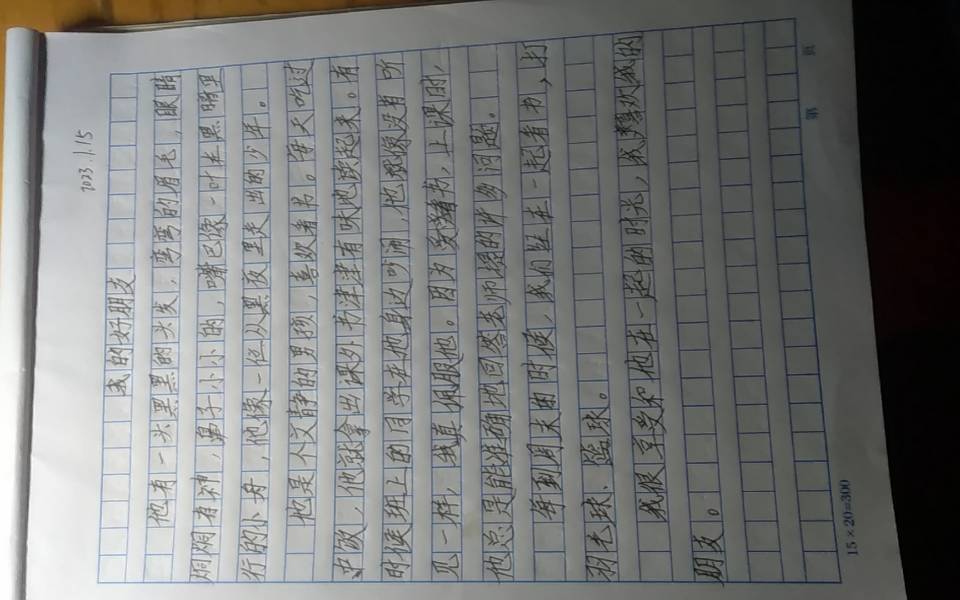 2023.1.15
我的好朋友
他有一头黑黑的头发，弯弯的眉毛，眼睛
炯炯有神，鼻子小小的，嘴巴像一叶在黑暗里
行的小舟，他像一位从黑夜里走出的少年。
他是个文静的男孩，喜欢看书。每天吃过
中饭，他就拿出课外书津津有味地读起来。有
时候班上的同学在他身边吵闹，他都像没有听
见一样，我真佩服他。因为爱看书，上课时，
他总是能准确地回答老师提的许多问题。
每到周末的时候，我们驻在一起看书，打
羽毛球、踢球。
我很享受和他在一起的时光，我喜欢我的
朋友。
第 页
15×20=300